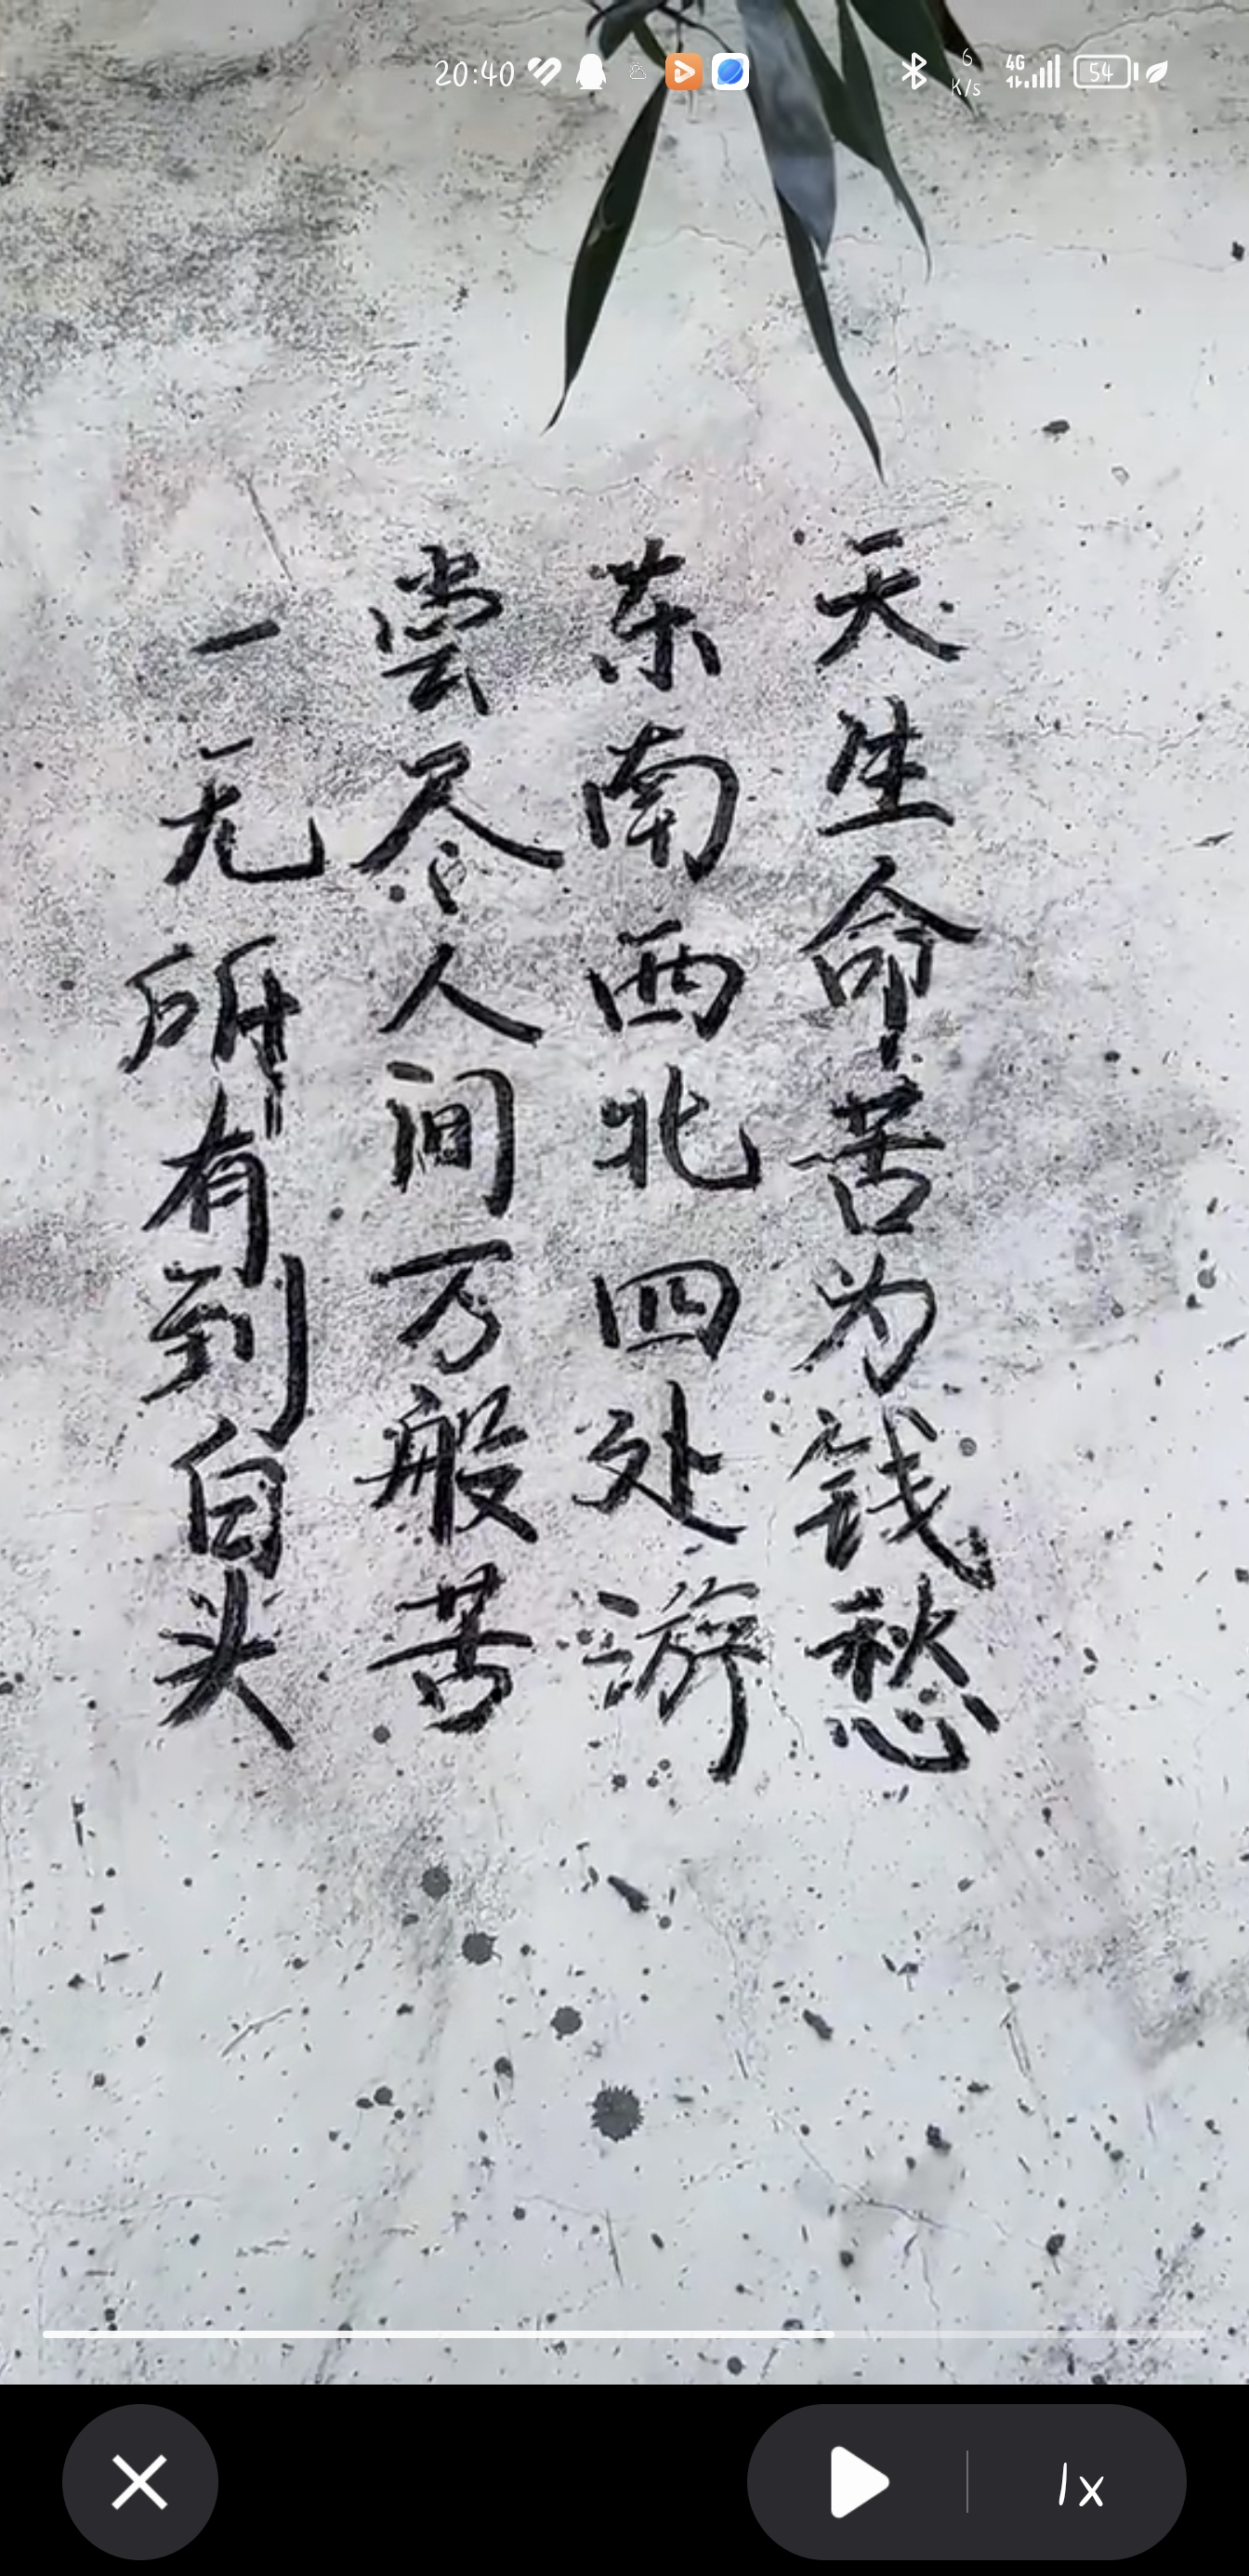 20:40
6 K/s
4G
54
天生命苦为钱愁
东南西北四处游
尝尽人间万般苦
一无所有到白头
1x